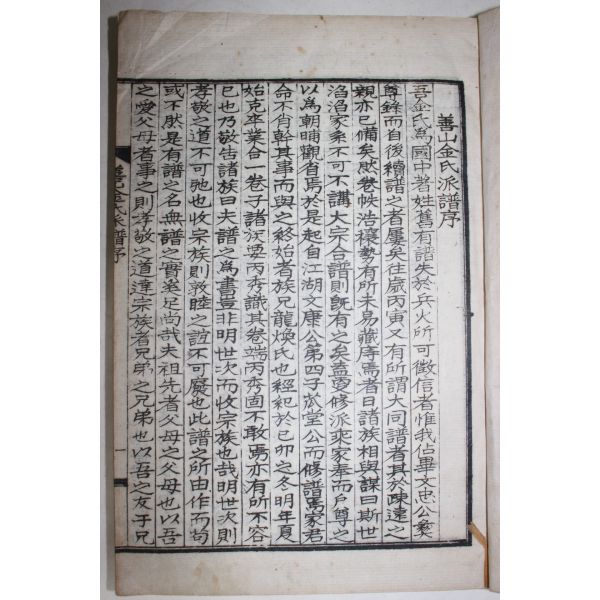 善山金氏派譜序
吾金氏爲國中著姓舊有譜失於兵火所可徵信者惟我佔畢文忠公彝
尊錄而自後續譜之者屢矣在歲丙寅又有所謂大同譜者其於疎遠之
親亦已備矣然卷帙浩穰勢有所未易藏庤焉者日諸族相與謀曰斯世
滔滔家乘不可不講大宗合譜則旣有之矣盍更修派乘家奉而戶尊之
以爲朝晡觀省焉於是起自江湖文康公第四子 堂公而修譜焉家君
命不肖幹其事而與之終始者族兄龍煥氏也經紀於己卯之冬明年夏
始克卒業合一卷子諸族要丙秀識其卷端丙秀固不敢焉亦有所不容
已也乃敬告諸族曰夫譜之爲書豈非明世次而收宗族也哉明世次則
孝敬之道不可弛也收宗族則敦睦之誼不可廢也此譜之所由作而苟
或不然是有譜之名無譜之實奚足尚哉夫祖先者父母之父母也以吾
之愛父母者事之則孝敬之道達宗族者兄弟之兄弟也以吾之友于兄
善山金氏派譜序
一